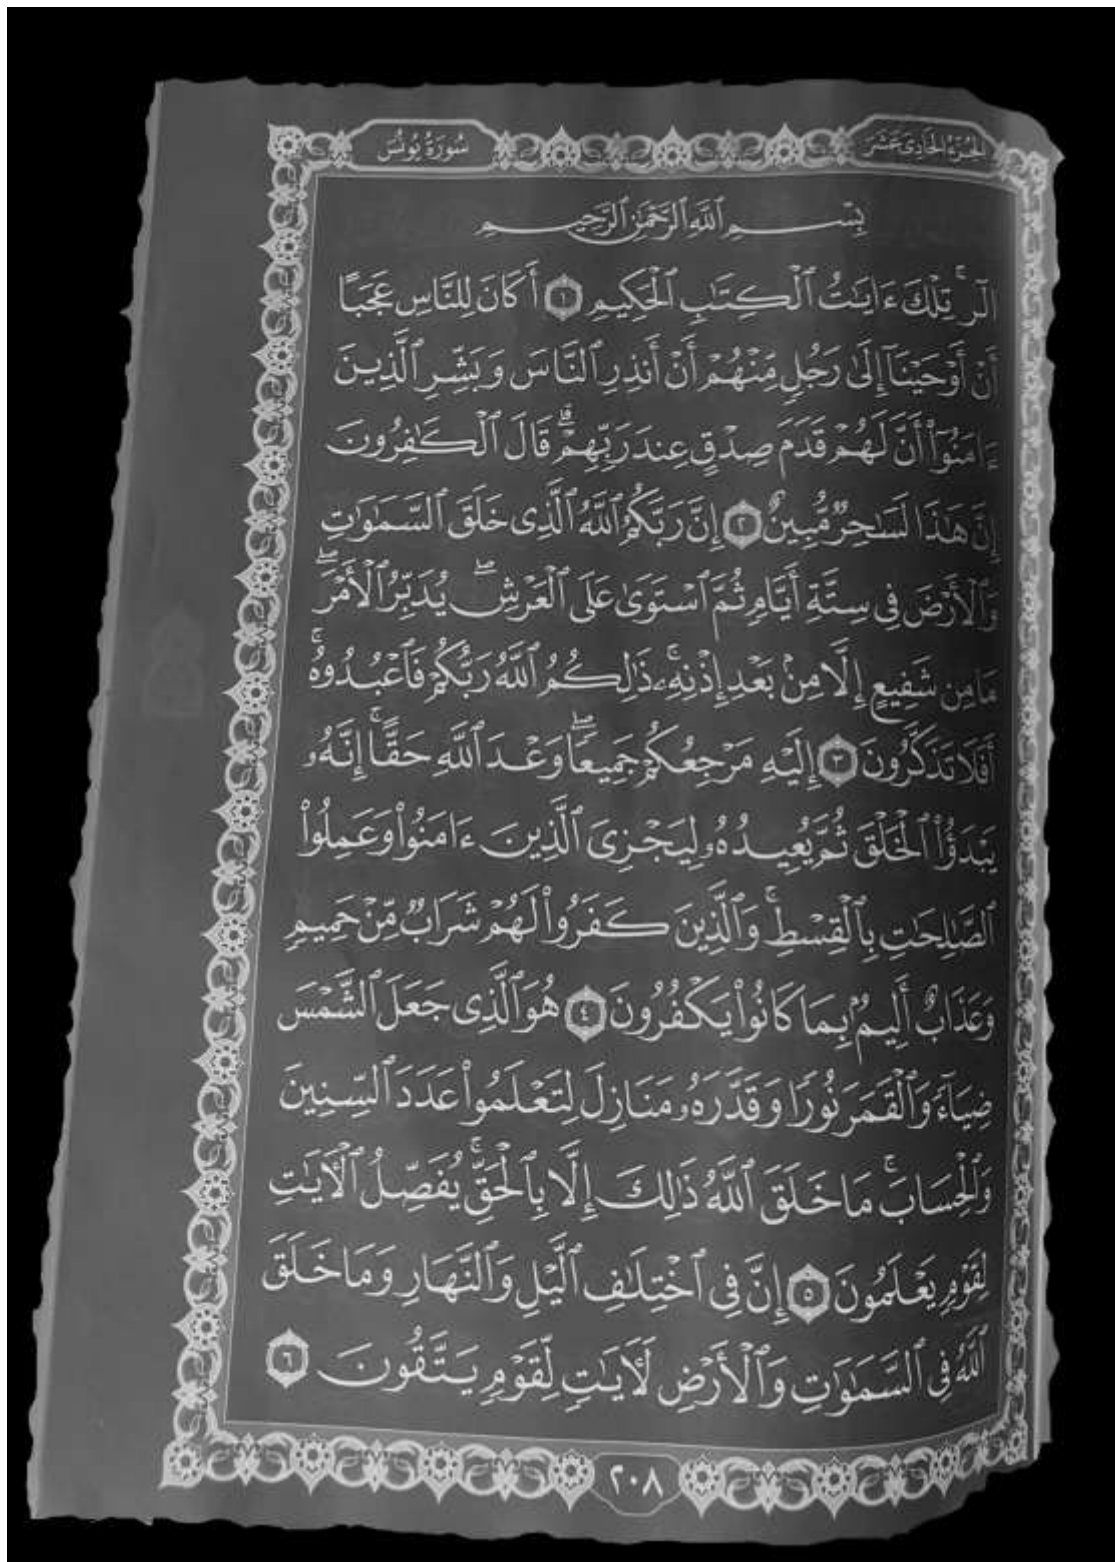 الجزء الحادي عشر
سورة يونس
بِسْمِ ٱللَّهِ ٱلرَّحْمَٰنِ ٱلرَّحِيمِ
الٓر ۚ تِلْكَ ءَايَٰتُ ٱلْكِتَٰبِ ٱلْحَكِيمِ ١ أَكَانَ لِلنَّاسِ عَجَبًا
أَنْ أَوْحَيْنَآ إِلَىٰ رَجُلٍ مِّنْهُمْ أَنْ أَنذِرِ ٱلنَّاسَ وَبَشِّرِ ٱلَّذِينَ
ءَامَنُوٓا۟ أَنَّ لَهُمْ قَدَمَ صِدْقٍ عِندَ رَبِّهِمْ ۗ قَالَ ٱلْكَٰفِرُونَ
إِنَّ هَٰذَا لَسَٰحِرٌ مُّبِينٌ ٢ إِنَّ رَبَّكُمُ ٱللَّهُ ٱلَّذِى خَلَقَ ٱلسَّمَٰوَٰتِ
وَٱلْأَرْضَ فِى سِتَّةِ أَيَّامٍ ثُمَّ ٱسْتَوَىٰ عَلَى ٱلْعَرْشِ ۖ يُدَبِّرُ ٱلْأَمْرَ ۖ
مَا مِن شَفِيعٍ إِلَّا مِنۢ بَعْدِ إِذْنِهِۦ ۚ ذَٰلِكُمُ ٱللَّهُ رَبُّكُمْ فَٱعْبُدُوهُ ۚ
أَفَلَا تَذَكَّرُونَ ٣ إِلَيْهِ مَرْجِعُكُمْ جَمِيعًا ۖ وَعْدَ ٱللَّهِ حَقًّا ۚ إِنَّهُۥ
يَبْدَؤُا۟ ٱلْخَلْقَ ثُمَّ يُعِيدُهُۥ لِيَجْزِىَ ٱلَّذِينَ ءَامَنُوا۟ وَعَمِلُوا۟
ٱلصَّٰلِحَٰتِ بِٱلْقِسْطِ ۚ وَٱلَّذِينَ كَفَرُوا۟ لَهُمْ شَرَابٌ مِّنْ حَمِيمٍ
وَعَذَابٌ أَلِيمٌۢ بِمَا كَانُوا۟ يَكْفُرُونَ ٤ هُوَ ٱلَّذِى جَعَلَ ٱلشَّمْسَ
ضِيَآءً وَٱلْقَمَرَ نُورًا وَقَدَّرَهُۥ مَنَازِلَ لِتَعْلَمُوا۟ عَدَدَ ٱلسِّنِينَ
وَٱلْحِسَابَ ۚ مَا خَلَقَ ٱللَّهُ ذَٰلِكَ إِلَّا بِٱلْحَقِّ ۚ يُفَصِّلُ ٱلْـَٔايَٰتِ
لِقَوْمٍ يَعْلَمُونَ ٥ إِنَّ فِى ٱخْتِلَٰفِ ٱلَّيْلِ وَٱلنَّهَارِ وَمَا خَلَقَ
ٱللَّهُ فِى ٱلسَّمَٰوَٰتِ وَٱلْأَرْضِ لَـَٔايَٰتٍ لِّقَوْمٍ يَتَّقُونَ ٦
٢٠٨